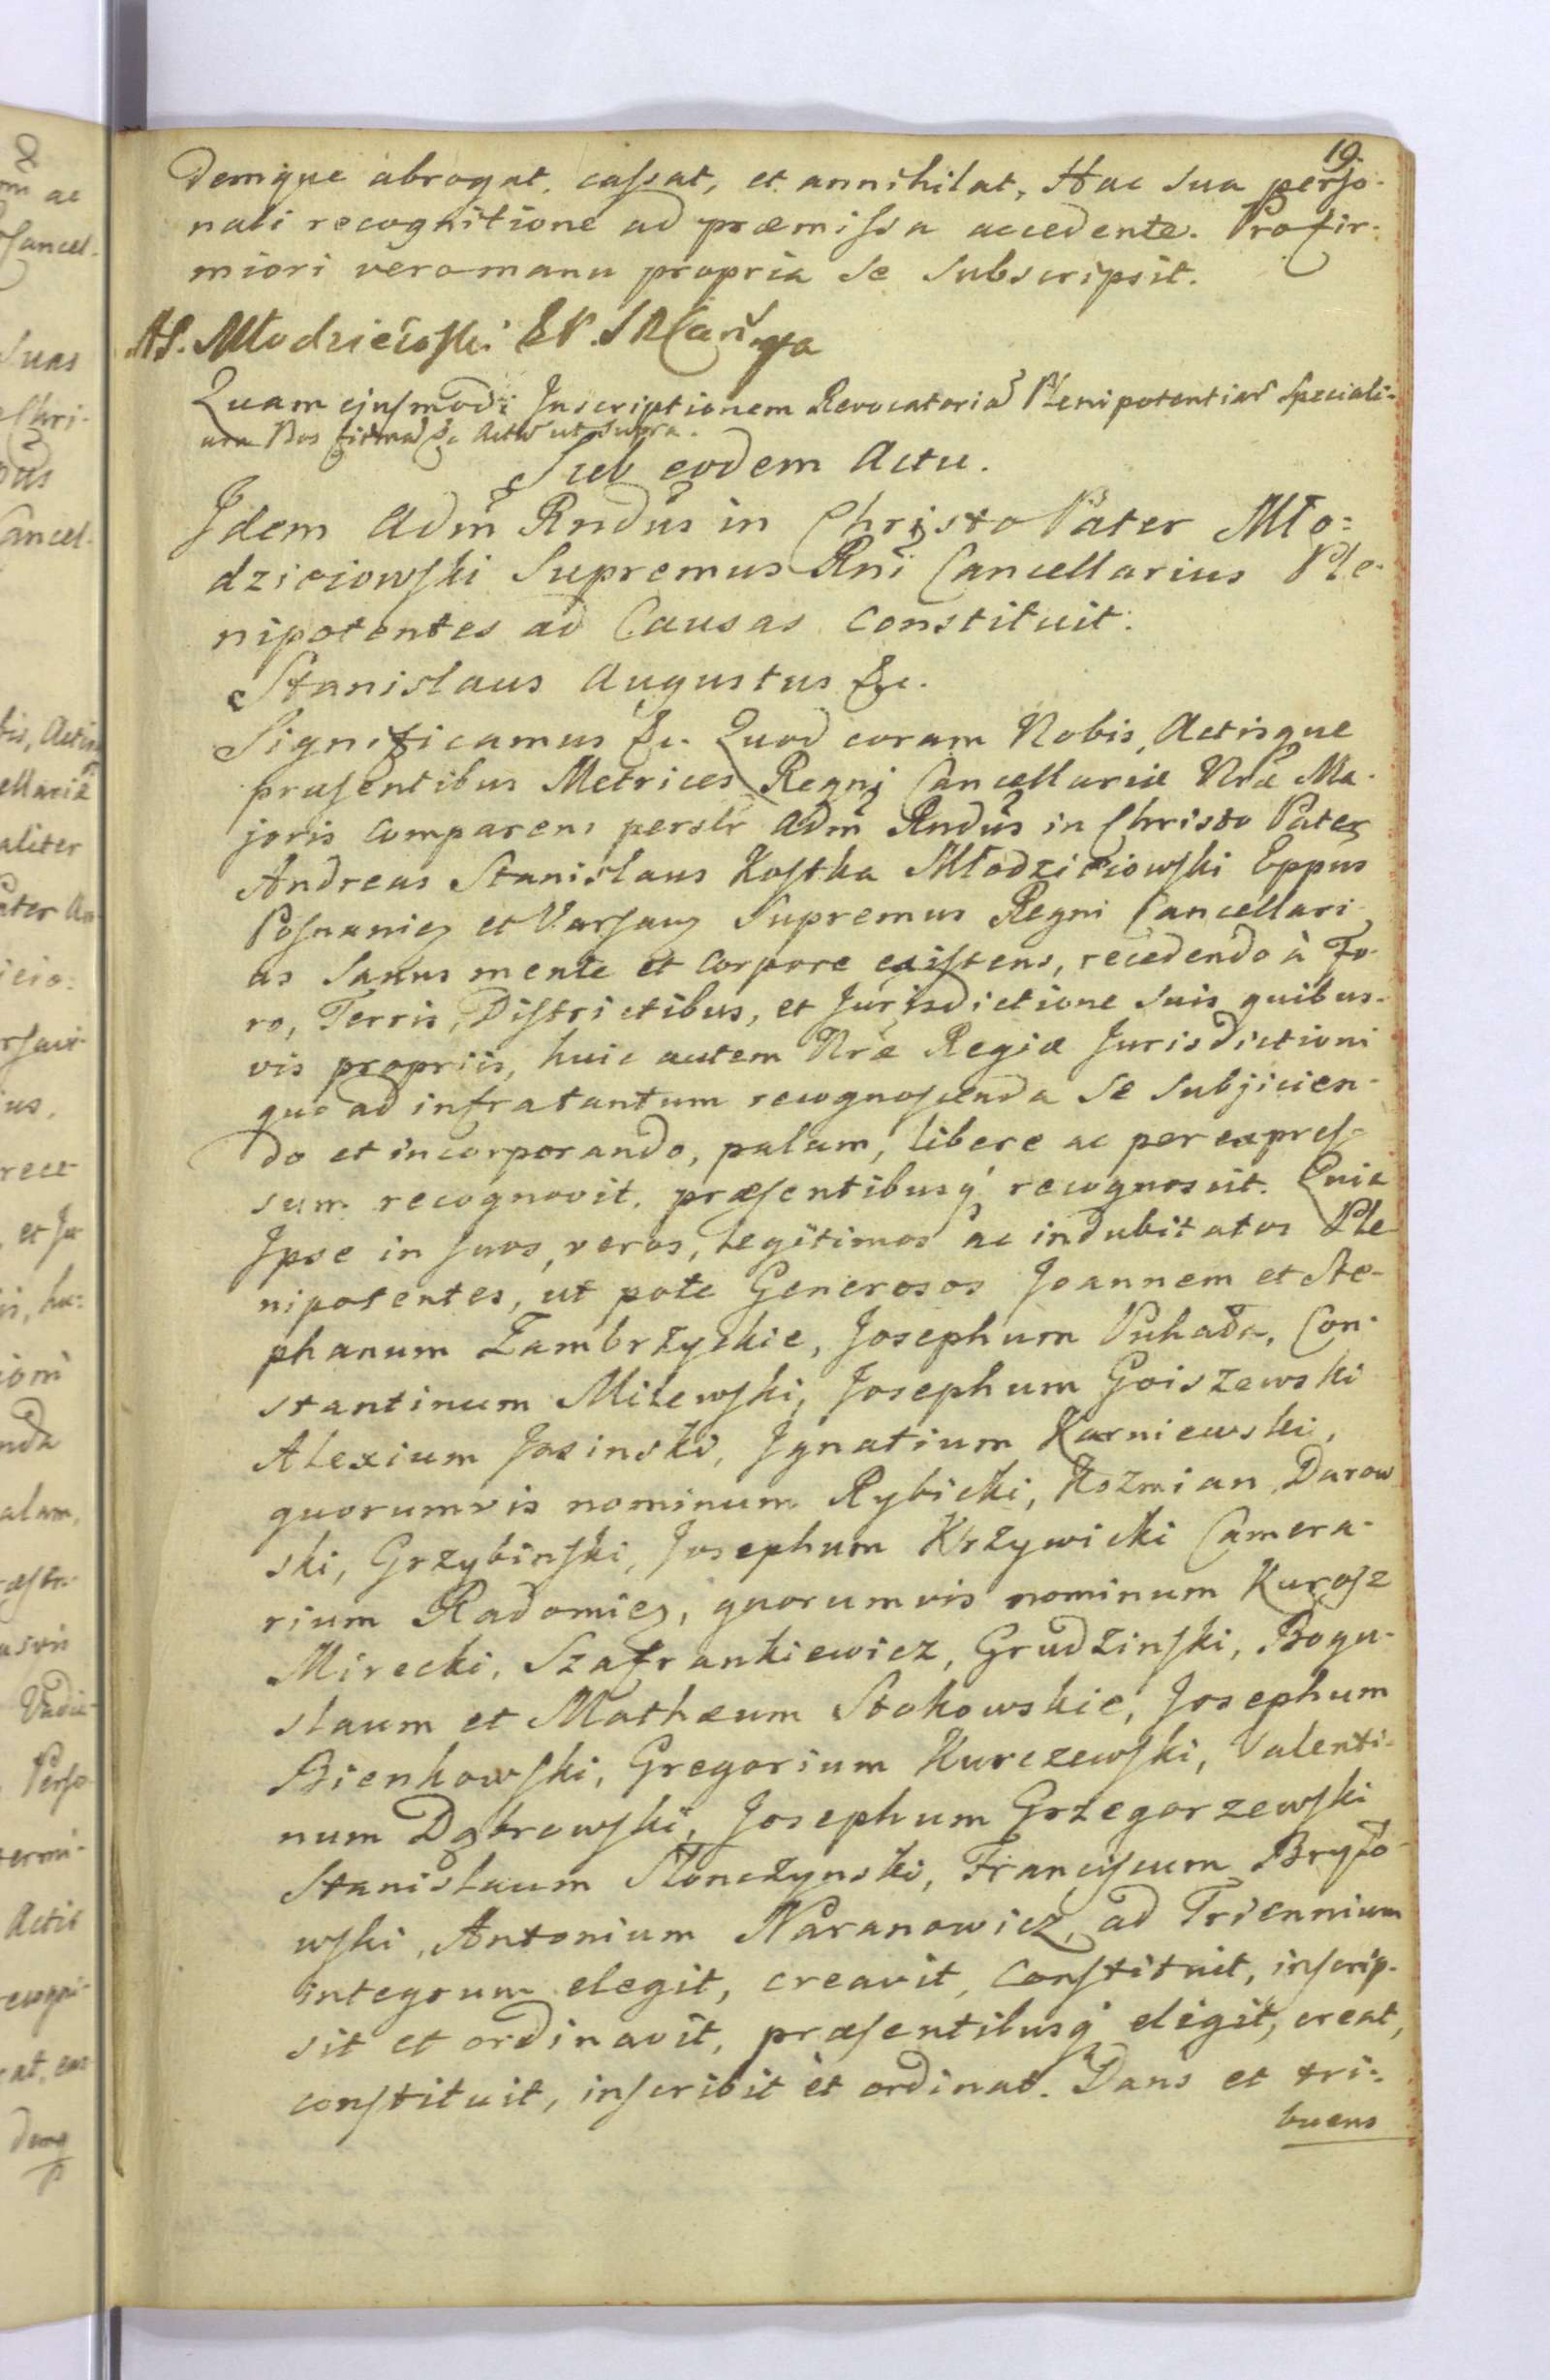 19.
demque abrogat, caſsat, et annihilat, Hac sua perso-
nali recognitione ad præmiſsa accedente. Pro fir-
miori vero manu propria se subscripsit.
AS. Młodzieioſki EP.
Quam ejuſmodi Inscriptionem Revocatoriã Plenipotentiar Speciali-
um Nos Actũ ut Supra.
Sub eodem Actu.
Idem Adm̃ Rndũs in Christo Pater Mło=
dzieiowſki Supremus Rnĩ Cancellarius Ple-
nipotentes ad Causas constituit.
Stanislaus Augustus &c.
Significamus &c. Quod coram Nobis, Actisque
præſentibus Metrices Regni Cancellariæ Nræ Ma-
joris comparens perslr Adm̃ Rndũs in Christo Pater
Andreas Stanislaus Koſtka Młodzieiowſki Eppus
Poſnanien et Varſavien Supremus Regni Cancellari
us Sanus mente et corpore exiſtens, recedendo à Fo-
ro, Terris, Diſtrictibus, et Jurisdictione Suis quibus-
vis propriis, huic autem Nræ Regiæ Jurisdictioni
quo ad infra tantum recognoſcenda Se Subjicien-
do et incorporando, palam, libere ac per expreſ-
sum recognovit, præſentibusq́ recognoscit. Quia
Ipse in ſuos, veros, legitimos ac indubitatos Ple
nipotentes, ut pote Generosos Joannem et Ste-
phanum Zambrzyckie, Josephum Puhała, Con-
stantinum Milewſki, Josephum Goiszewski
Alexium Josinski, Ignatium Karniewski,
quorumvis nominum Rybicki, Kozmian, Darow
ski, Grzybinſki, Josephum Krzywicki Camera-
rium Radomien, quorumvis nominum Kuroſz
Mirecki, Szafrankiewicz, Grudzinſki, Bogu-
slaum et Mathæum Stokowskie, Josephum
Bienkowſki, Gregorium Kurczewſki, Valenti-
num Dąbrowſki, Josephum Grzegorzewſki
Stanislaum Słonczynski, Franciſcum Bryſo-
wſki, Antonium Naranowicz, ad Triennium
integrum elegit, creavit, Conſtituit, inſcrip-
sit et ordinavit, præſentibusq́ eligit, creat,
conſtituit, inſcribit et ordinat. Dans et tri-
buens